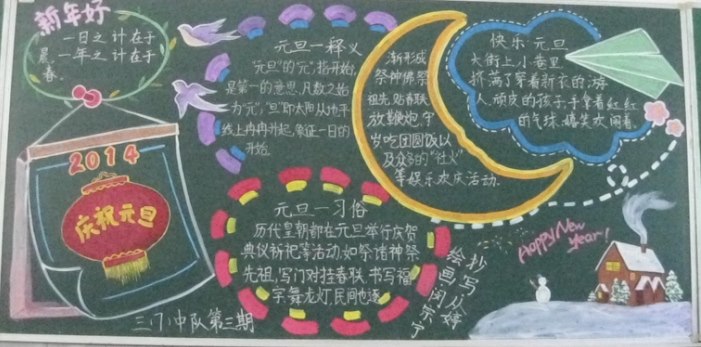 新年好
一日之计在于
晨,一年之计在于
春。
2014
庆祝元旦
三(7)中队第三期
元旦—释义
"元旦"的"元"指开始,
是第一的意思,凡数之始
为"元","旦"即太阳从地平
线上冉冉升起,象征一日的
开始.
元旦—习俗
历代皇朝都在元旦举行庆贺
典仪祈祀等活动,如祭诸神祭
先祖,写门对挂春联,书写福
字、舞龙灯,民间也逐
渐形成
祭神佛、祭
祖先、贴春联、
放鞭炮、守
岁、吃团圆饭以
及众多的"社火"
等娱乐欢庆活动.
快乐·元旦
大街上,小巷里,
挤满了穿着新衣的游
人,顽皮的孩子,手拿着红红
的气球,嬉笑欢闹着.
抄写 从婷
绘画 闵乐
Happy New
year!